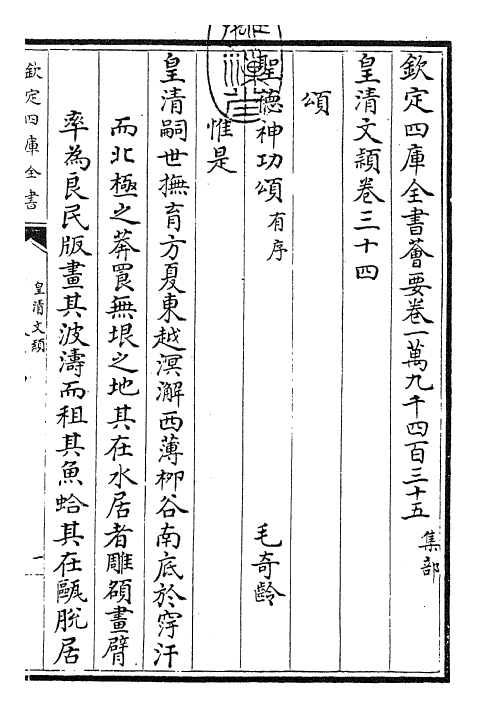 欽定四庫全書薈要卷一萬九千四百三十五集部
皇清文穎卷三十四
頌
聖德神功頌有序 毛奇齡
惟是
皇清嗣世撫育方夏東越溟澥西薄柳谷南底於穿汗
而北極之莽罠無垠之地其在水居者雕額畫臂
率為良民版畫其波濤而租其魚蛤其在甌脫居
欽定四庫全書
皇清文穎
一